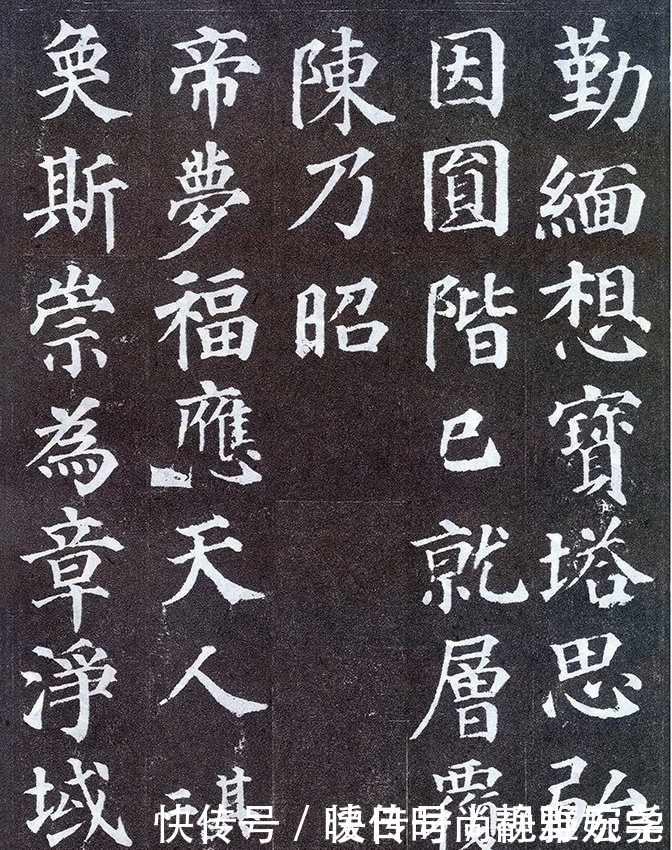 勤緬想寶塔思弘
因圓階已就層覆
陳乃昭
帝夢福應天人
奐斯崇為章淨域
快传号 /